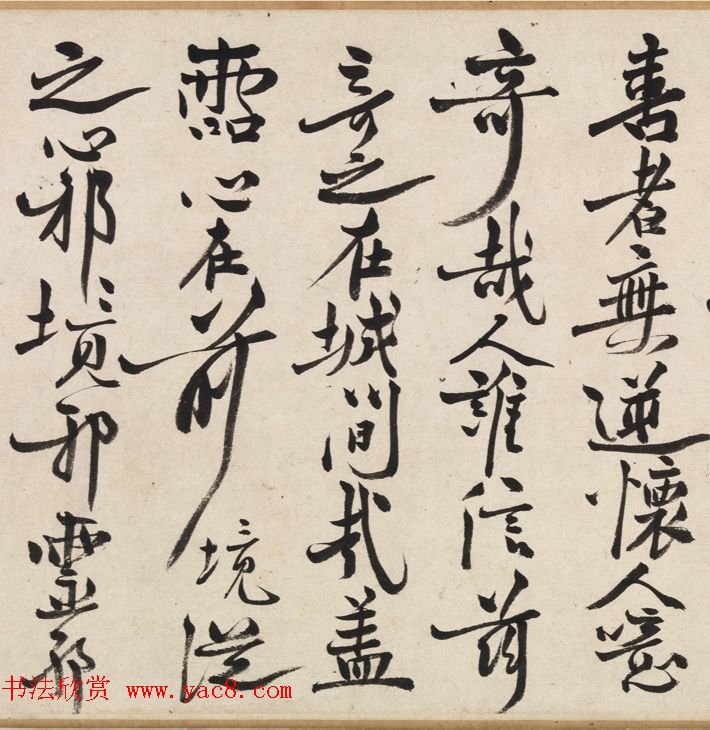 善者無逆懷人
奇哉人誰信
奇之在城間哉盖
靈心在前境從
之心邪境邪靈邪
书法欣赏 www.yac8.com